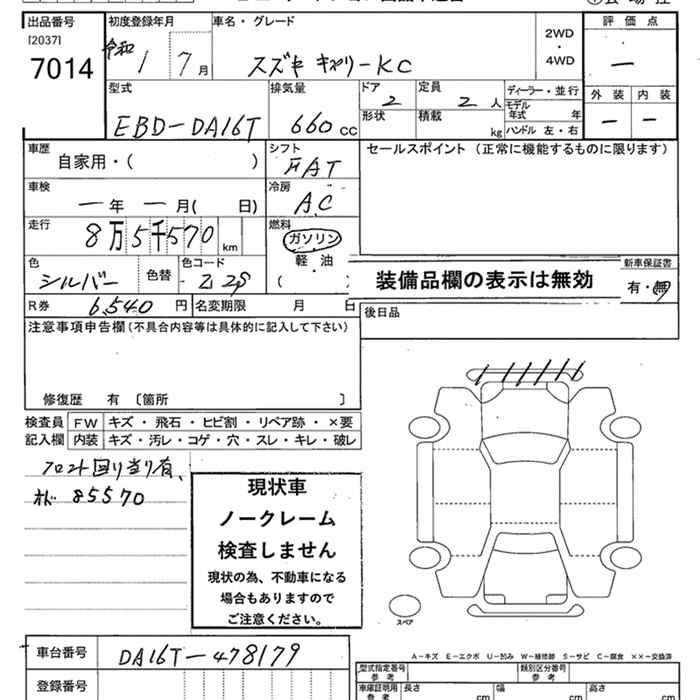 出品番号 初度登録年月 車名・グレード 2WD ・ 4WD 評価点
[2037]
7014 令和 1 7月 スズキ キャリーKC ー
型式 排気量 ドア 定員 ディーラー・並行 外装 内装
EBD-DA16T 660cc 2 2人 モデル年式 年 ー ー
形状 積載 kg ハンドル 左・右
車歴 シフト セールスポイント (正常に機能するものに限ります)
自家用・( ) FAT
車検 冷房
ー年ー月( 日) AC
走行 燃料
8万5千570km ガソリン
軽油
( )
色 色替 色コード
シルバー Z2S
装備品欄の表示は無効
新車保証書
有・無
R券 6,540円 名変期限 月 日
後日品
注意事項申告欄(不具合内容等は具体的に記入して下さい)
修復歴 有 〔箇所 〕
検査員記入欄 FW キズ・飛石・ヒビ割・リペア跡・×要
内装 キズ・汚レ・コゲ・穴・スレ・キレ・破レ
フロント回り当り有、
85570
現状車
ノークレーム
検査しません
現状の為、不動車になる
場合もありますので
ご注意ください。
スペア
A-キズ E-エクボ U-凹み W-補修跡 S-サビ C-腐食 ××-交換済
車台番号 DA16T-478179
型式指定番号 参考 類別区分番号 参考
登録番号
車庫証明用 参考 長さ cm 幅 cm 高さ cm